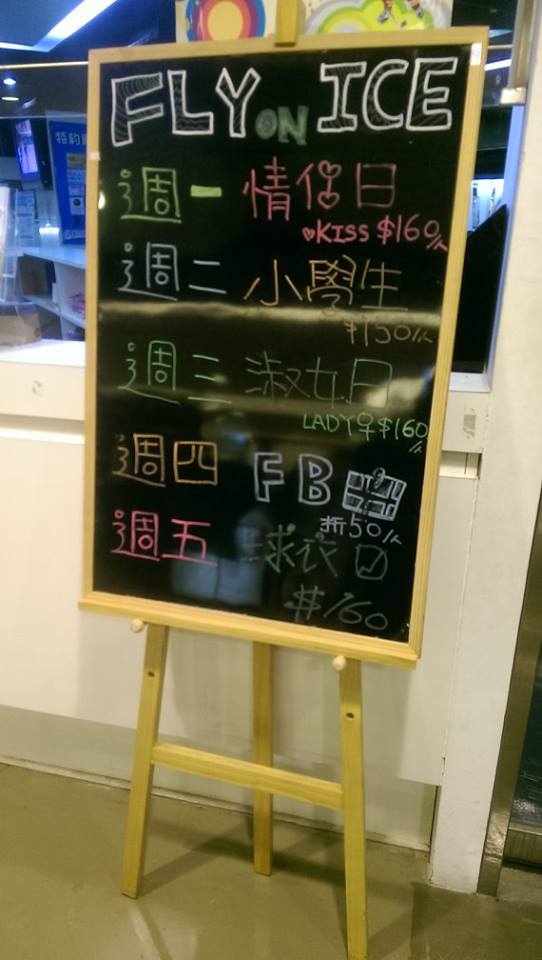 FLY ON ICE
週一 情侶日
KISS $160/人
週二 小學生
$150/人
週三 淑女日
LADY $160/人
週四 FB
折50/人
週五 球衣日
$160
特約